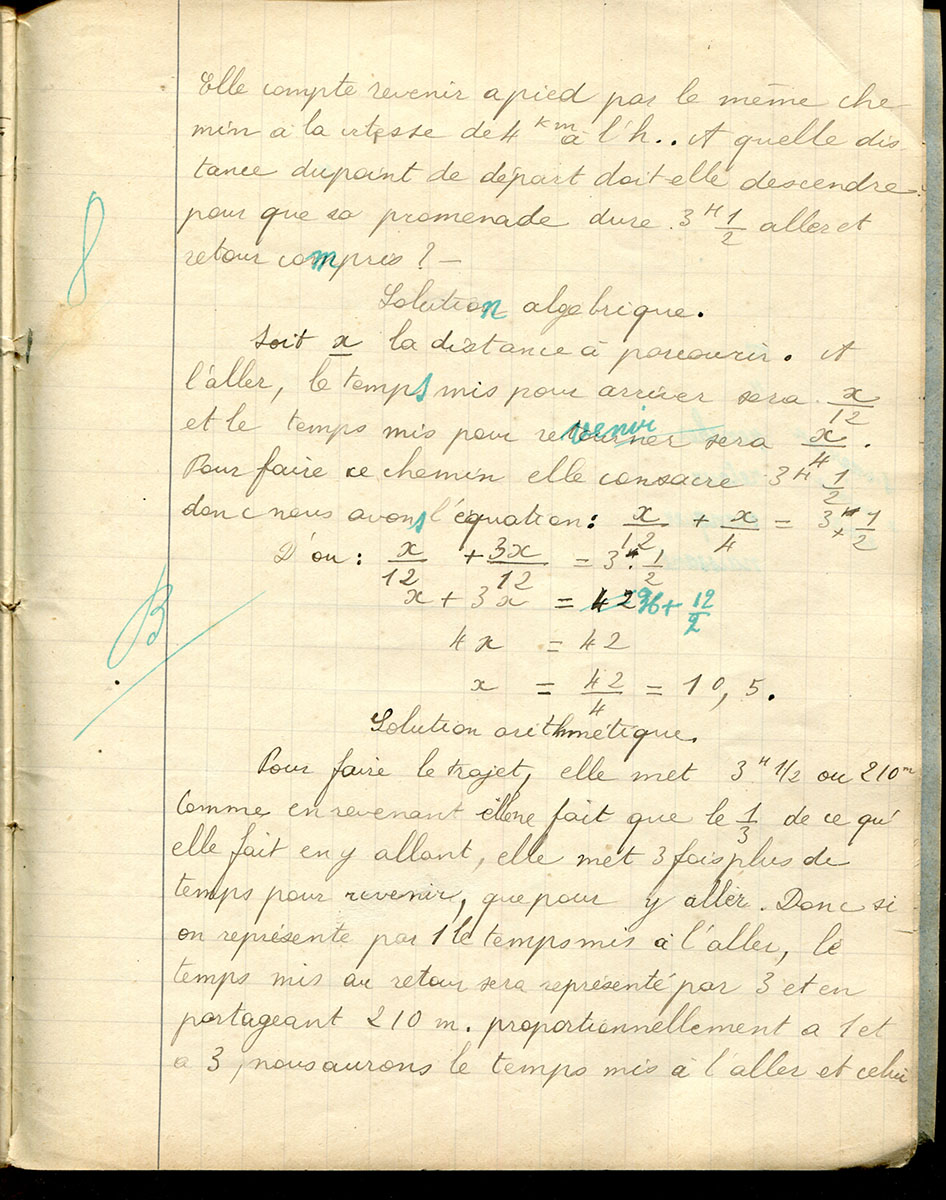 Elle compte revenir a pied par le même che
min a la vitesse de 4 km à l'h.. A quelle dis
tance du point de départ doit elle descendre
pour que sa promenade dure 3 H 1/2 aller et
retour compris ? —
8
Solution algebrique.
Soit x la distance à parcourir. A
l'aller, le temps mis pour arriver sera x/12
et le temps mis pour retourner venir sera x/4.
Pour faire ce chemin elle consacre 3 H 1/2
donc nous avons l'équation : x/12 + x/4 = 3 H + 1/2
D'ou : x/12 + 3x/12 = 3 H. 1/2
x + 3x = 42 36 + 12/2
B
4x = 42
x = 42/4 = 10,5.
Solution arithmétique.
Pour faire le trajet, elle met 3 H 1/2 ou 210 m
Comme en revenant elle ne fait que le 1/3 de ce qu'
elle fait en y allant, elle met 3 fois plus de
temps pour revenir, que pour y aller. Donc si
on représente par 1 le temps mis à l'aller, le
temps mis au retour sera représenté par 3 et en
partageant 210 m. proportionnellement a 1 et
a 3, nous aurons le temps mis à l'aller et celui